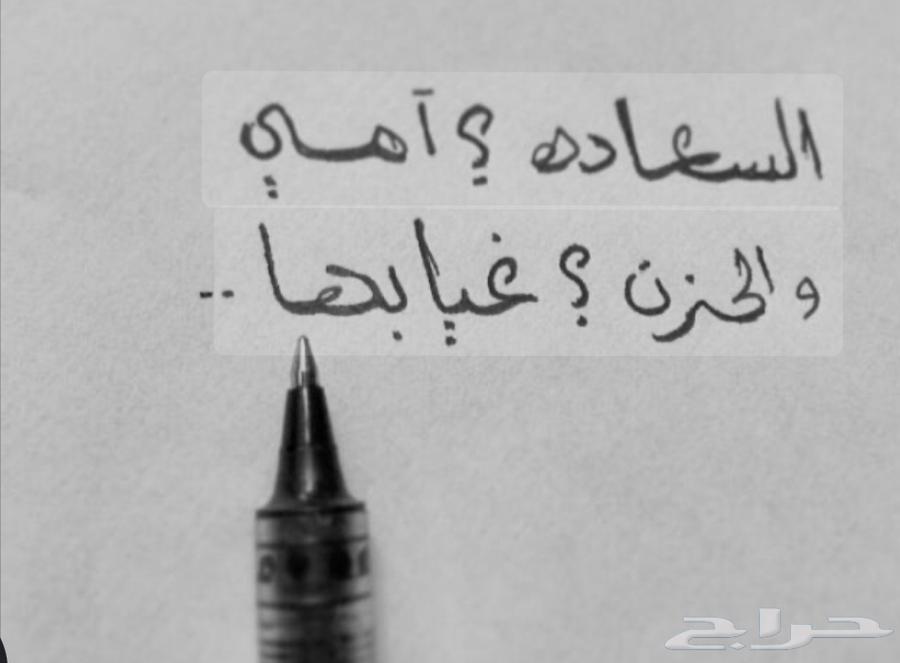 السعاده ؟ آمي
والحزن ؟ غيابها ..
حراج